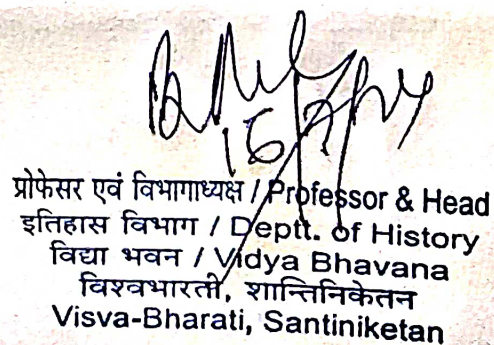 प्रोफेसर एवं विभागाध्यक्ष / Professor & Head
इतिहास विभाग / Deptt. of History
विद्या भवन / Vidya Bhavana
विश्वभारती, शान्तिनिकेतन
Visva-Bharati, Santiniketan